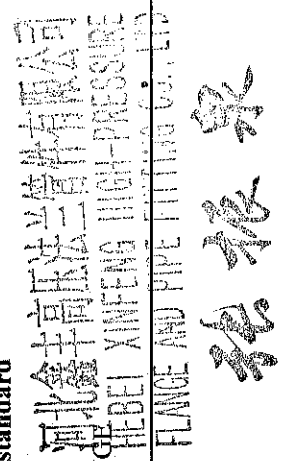 standard
河北鑫丰高压法兰管件有限公司
HEBEI XINFENG HIGH-PRESSURE
FLANGE AND PIPE FITTING CO., LTD